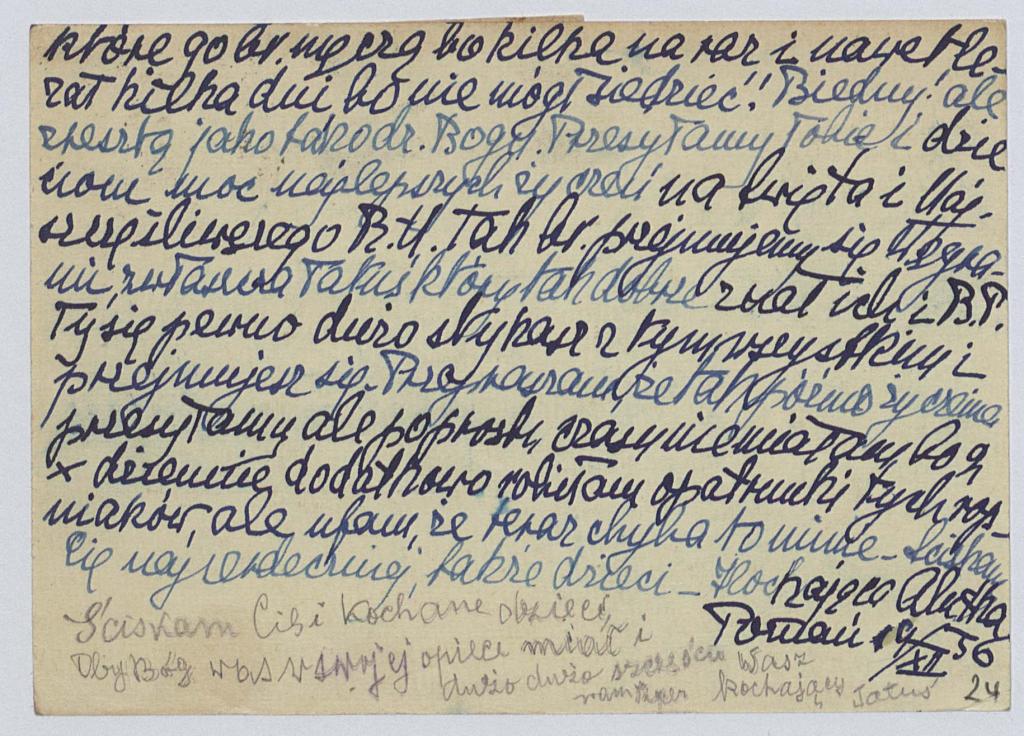 które go bv. męczą bo kilka na raz i nawet le-
żał kilka dni bo nie mógł siedzieć! Biedny! ale
zresztą jako tako dz. Bogu. Przesyłamy Tobie i dzie
ciom moc najlepszych życzeń na święta i Naj-
szczęśliwszego R.N. Tak bv. przejmujemy się Węgra-
mi, zwłaszcza Tatuś który tak dobrze znał ich i B.P.
Ty się pewno dużo stykasz z tym wszystkim i
przejmujesz się. Przepraszam, że tak późno życzenia
przesyłamy ale poprostu czasu nie miałam bo 9
x dziennie dodatkowo robiłam opatrunki tych
niaków, ale ufam, że teraz chyba to minie - Ściskam
Cię najserdeczniej, także dzieci - Kochająca
Poznań 19/XII 56
Ściskam Cię i kochane dzieci,
Oby Bóg was w swojej opiece miał i
dużo dużo szczęścia Wasz
kochający Tatuś
24